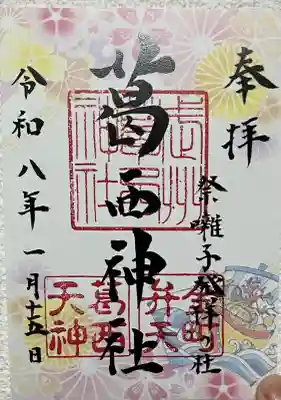 奉拝
祭囃子発祥の社
葛西神社
令和八年一月十五日
葛西神社
金町弁天
葛西天神